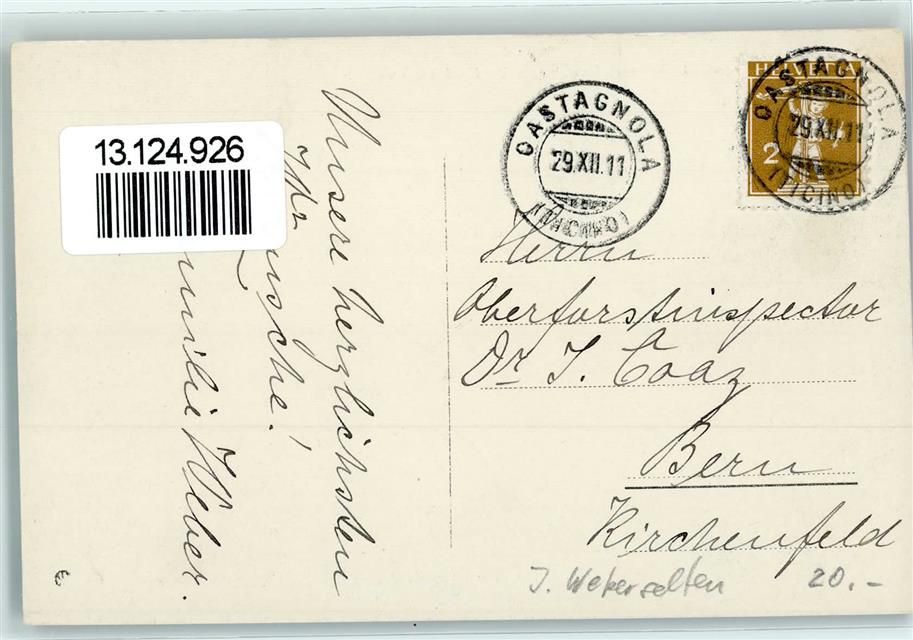 13.124.926
HELVETIA
2
CASTAGNOLA
29.XII.11
(TICINO)
CASTAGNOLA
29.XII.11
(TICINO)
Unsere herzlichsten
Weber.
Herrn
Oberforstinspector
Dr J. Coaz
Bern
Kirchenfeld
20.-